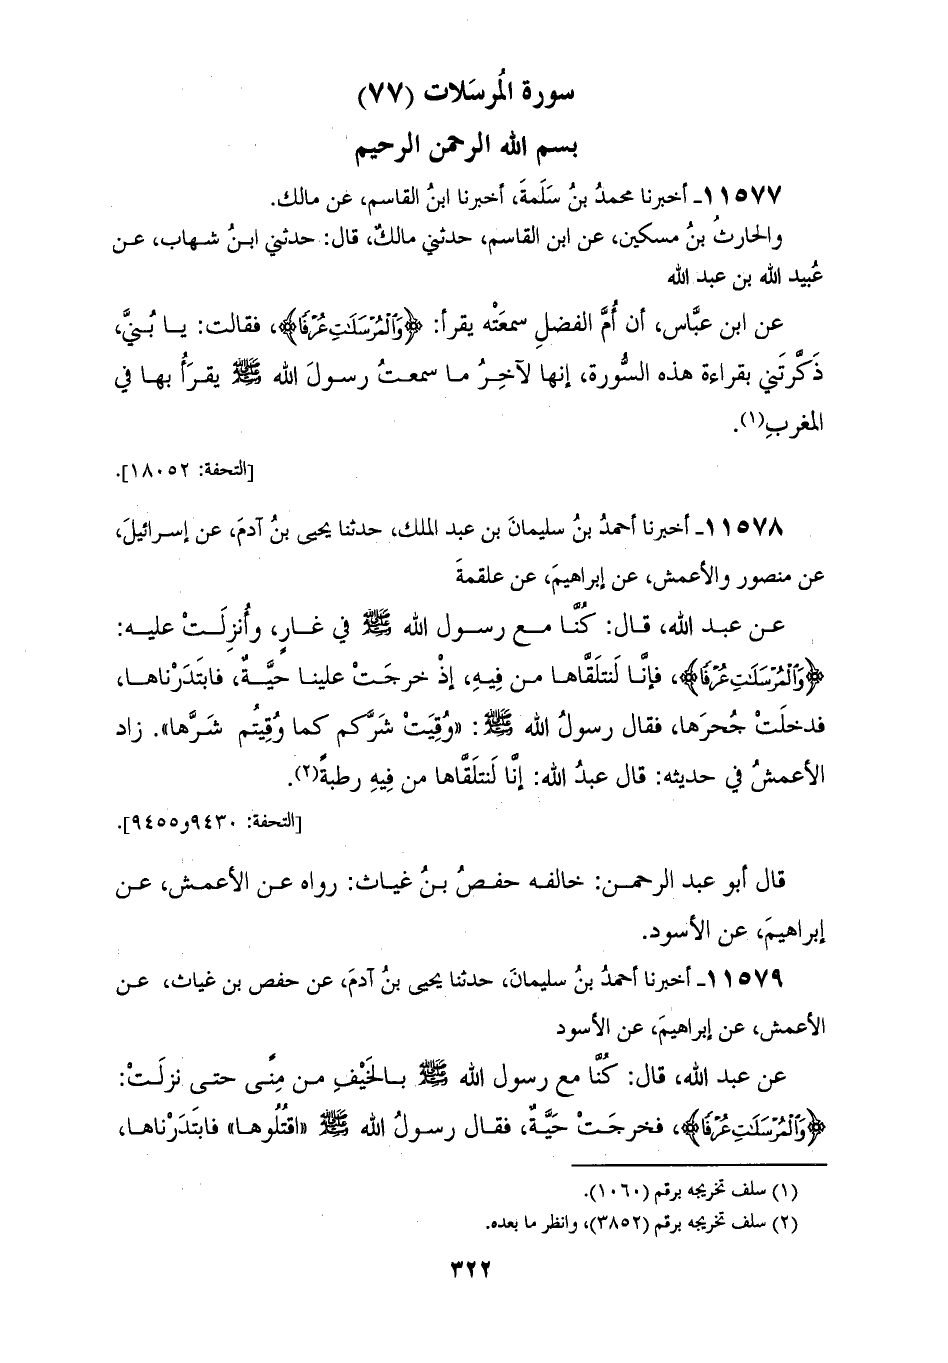 سورة المُرسَلات (٧٧)
بسم الله الرحمن الرحيم
١١٥٧٧ـ أخبرنا محمدُ بنُ سَلَمةَ، أخبرنا ابنُ القاسم، عن مالك.
والحارثُ بنُ مسكين، عن ابن القاسم، حدثني مالكٌ، قال: حدثني ابنُ شهاب، عن
عُبيد الله بن عبد الله
عن ابن عبَّاس، أن أُمَّ الفضلِ سمعَتْه يقرأ: ﴿وَٱلْمُرْسَلَٰتِ عُرْفًا﴾، فقالت: يا بُنيَّ،
ذَكَّرتَني بقراءة هذه السُّورة، إنها لآخِرُ ما سمعتُ رسولَ الله ﷺ يقرَأُ بها في
المغربِ(١).
[التحفة: ١٨٠٥٢].
١١٥٧٨ـ أخبرنا أحمدُ بنُ سليمانَ بن عبد الملك، حدثنا يحيى بنُ آدمَ، عن إسرائيلَ،
عن منصور والأعمش، عن إبراهيمَ، عن علقمةَ
عن عبد الله، قال: كُنَّا مع رسول الله ﷺ في غارٍ، وأُنزِلَتْ عليه:
﴿وَٱلْمُرْسَلَٰتِ عُرْفًا﴾، فإنَّا لَنتلَقَّاها من فِيهِ، إذْ خرجَتْ علينا حيَّةٌ، فابتَدَرْناها،
فدخلَتْ جُحرَها، فقال رسولُ الله ﷺ: «وُقِيَتْ شَرَّكم كما وُقِيتُم شَرَّها». زاد
الأعمشُ في حديثه: قال عبدُ الله: إنَّا لَنتلَقَّاها من فِيهِ رطبةً(٢).
[التحفة: ٩٤٣٠ و٩٤٥٥].
قال أبو عبد الرحمن: خالفه حفصُ بنُ غياث: رواه عن الأعمش، عن
إبراهيمَ، عن الأسود.
١١٥٧٩ـ أخبرنا أحمدُ بنُ سليمانَ، حدثنا يحيى بنُ آدمَ، عن حفص بن غياث، عن
الأعمش، عن إبراهيمَ، عن الأسود
عن عبد الله، قال: كُنَّا مع رسول الله ﷺ بالخَيْفِ من مِنًى حتى نزلَتْ:
﴿وَٱلْمُرْسَلَٰتِ عُرْفًا﴾، فخرجَتْ حيَّةٌ، فقال رسولُ الله ﷺ «اقتُلُوها» فابتَدَرْناها،
(١) سلف تخريجه برقم (١٠٦٠).
(٢) سلف تخريجه برقم (٣٨٥٢)، وانظر ما بعده.
٣٢٢